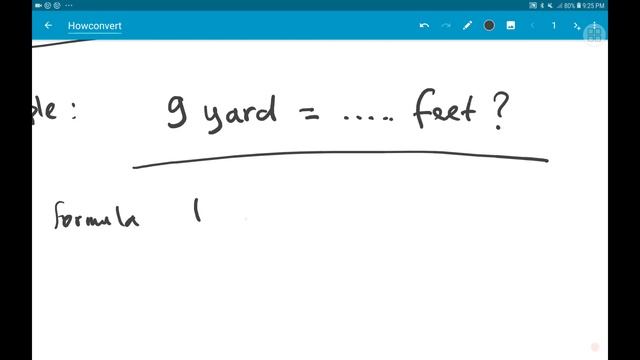 80% 9:25 PM
Howconvert
1
ple: 9 yard = ..... feet?
formula 1